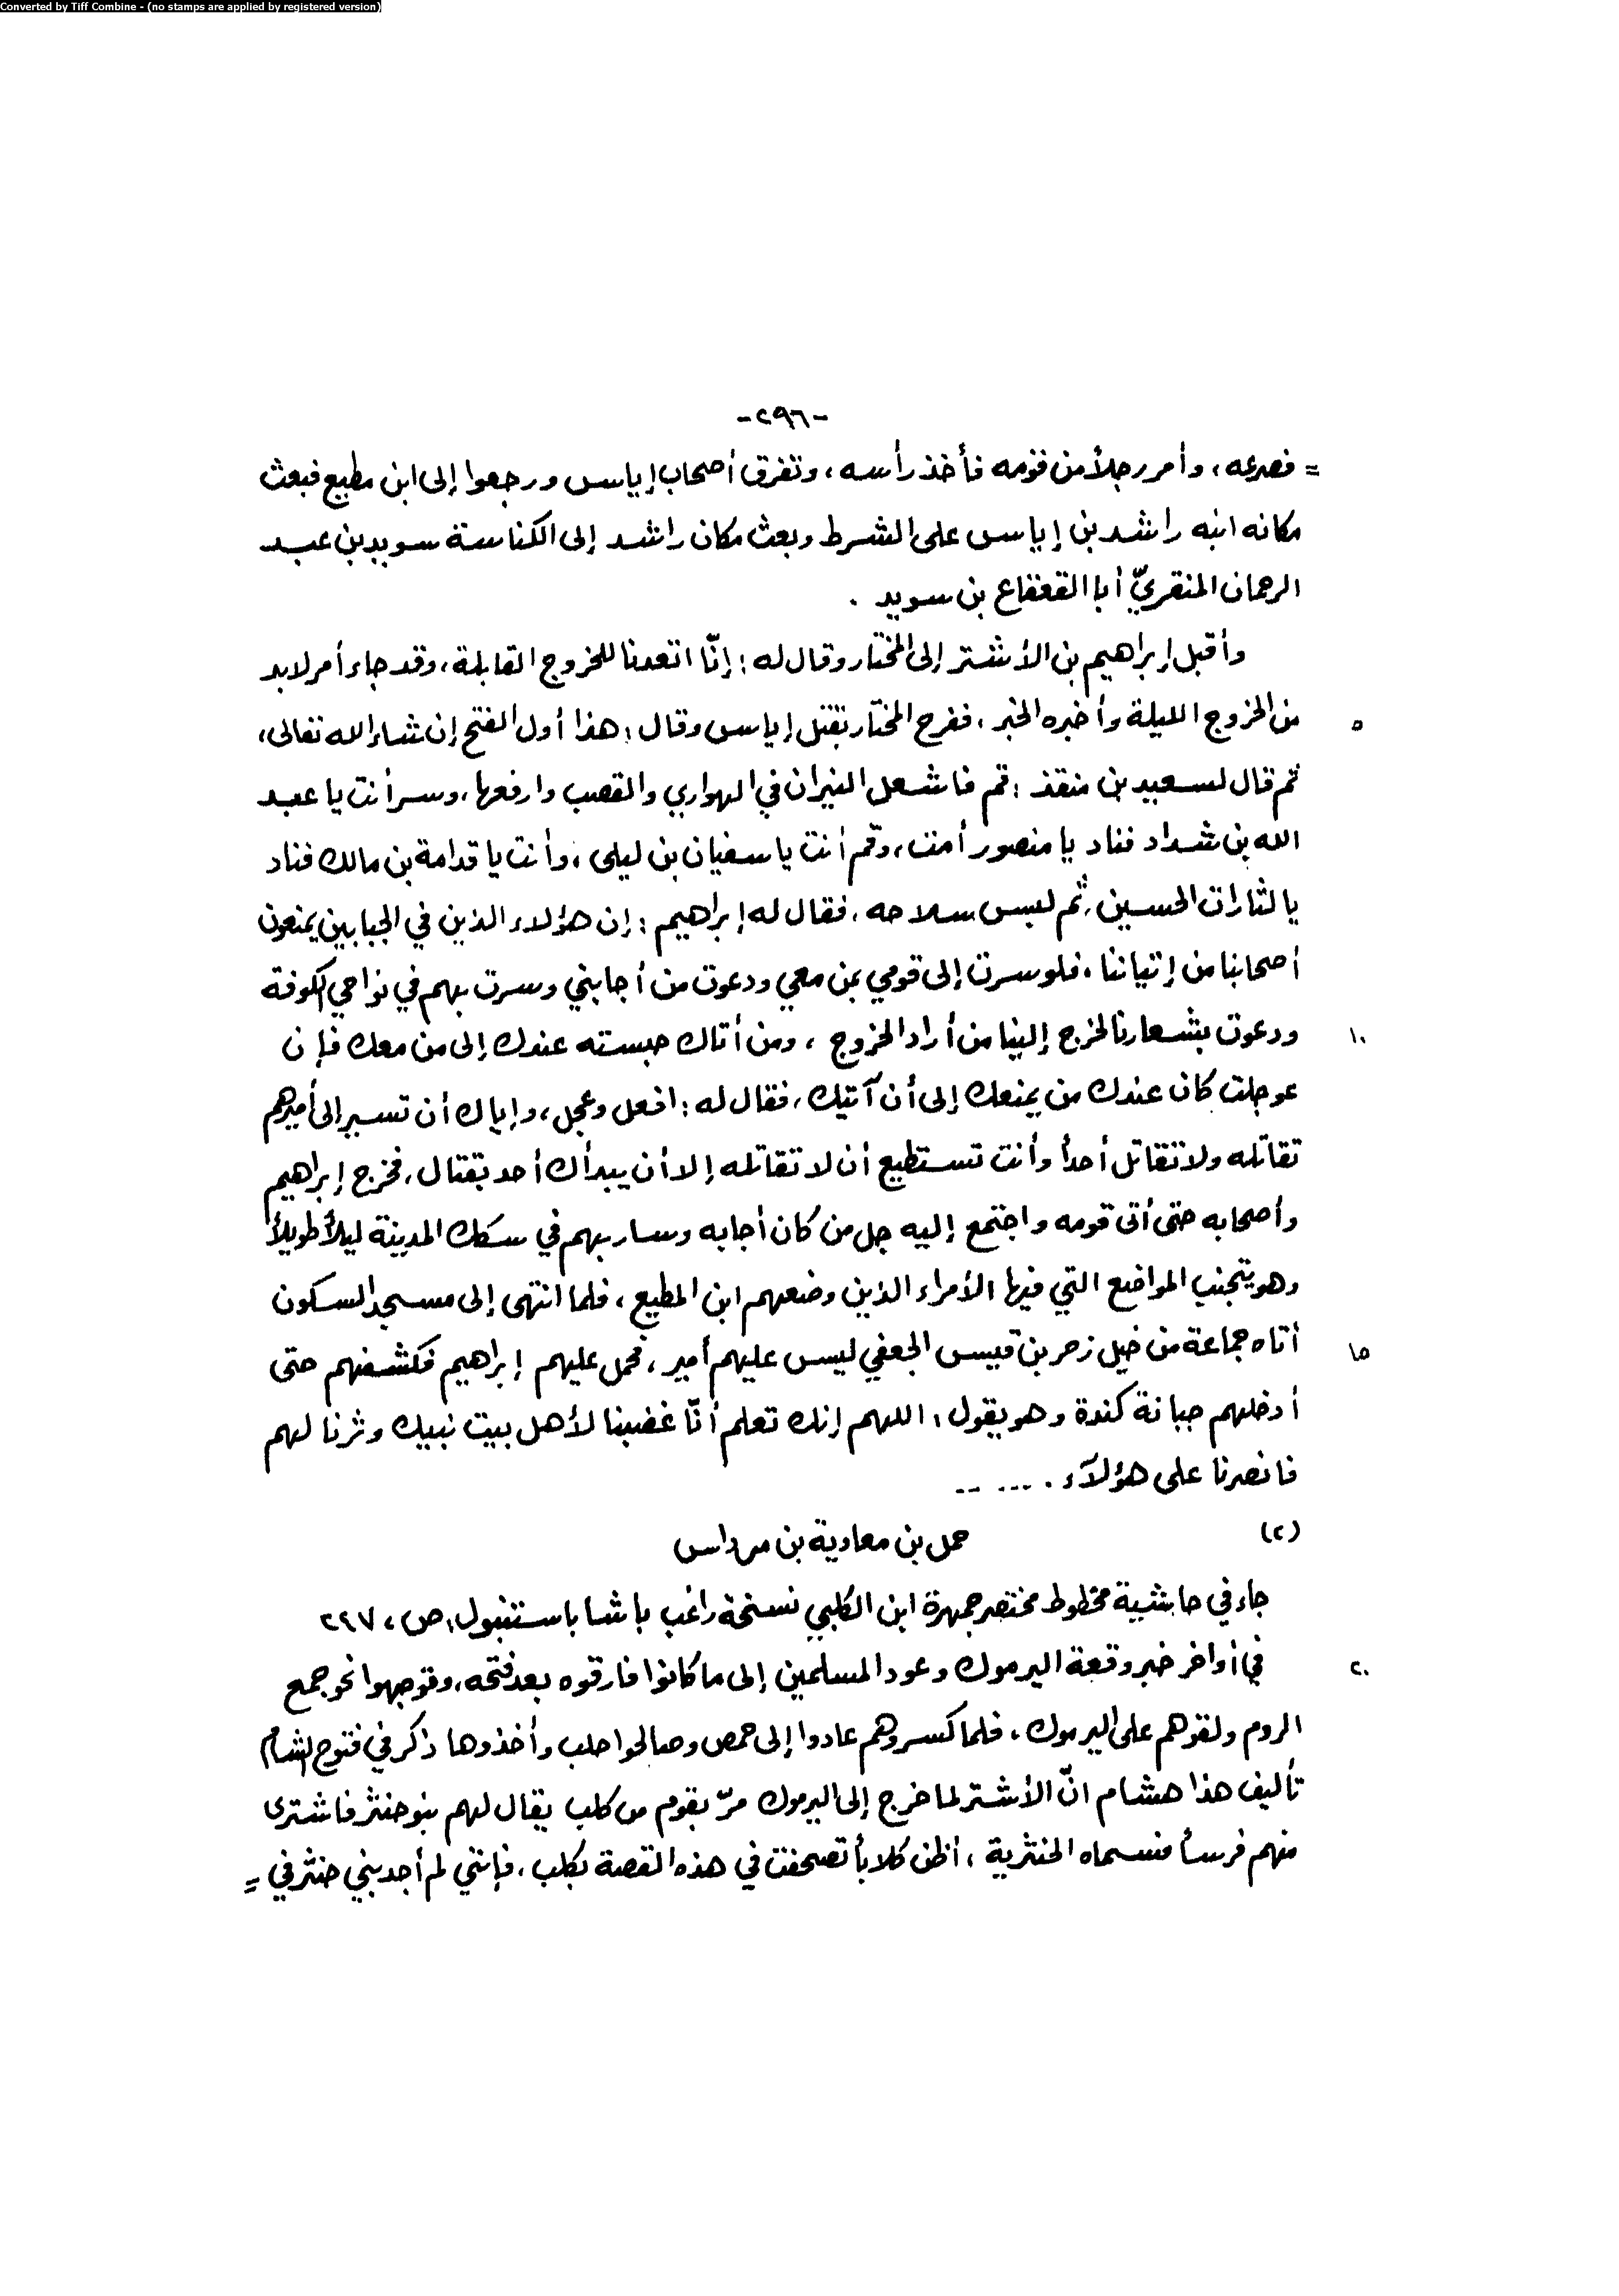 Converted by Tiff Combine - (no stamps are applied by registered version)
-٢٩٦-
= فصرعه، وأمر رجلاً من قومه فأخذ رأسه، وتفرق أصحاب إياس ورجعوا إلى ابن مطيع فبعث
مكانه ابنه راشد بن إياس على الشرط وبعث مكان راشد إلى الكناسة سويد بن عبد
الرحمان المنقريّ أبا القعقاع بن سويد .
وأقبل إبراهيم بن الأشتر إلى المختار وقال له: إنّا اتعدنا للخروج القابلة، وقد جاء أمر لابد
من الخروج الليلة وأخبره الخبر، ففرح المختار بقتل إياس وقال: هذا أول الفتح إن شاء الله تعالى، ٥
ثم قال لسعيد بن منقذ: قم فاشعل النيران في الهواري والقصب وارفعها، وسر أنت يا عبد
الله بن شداد فناد يا منصور أمت، وقم أنت يا سفيان بن ليلى، وأنت يا قدامة بن مالك فناد
يا لثارات الحسين، ثم لبس سلاحه، فقال له إبراهيم: إن هؤلاء الذين في الجبابين يمنعون
أصحابنا من إتياننا، فلو سرت إلى قومي بمن معي ودعوت من أجابني وسرت بهم في نواحي الكوفة
ودعوت بشعارنا لخرج إلينا من أراد الخروج، ومن أتاك حبسته عندك إلى من معك فإن ١٠
عوجلت كان عندك من يمنعك إلى أن آتيك، فقال له: افعل وعجل، وإياك أن تسير إلى أميرهم
تقاتله ولا تقاتل أحداً وأنت تستطيع أن لا تقاتله إلا أن يبدأك أحد بقتال، فخرج إبراهيم
وأصحابه حتى أتى قومه واجتمع إليه جل من كان أجابه وسار بهم في سكك المدينة ليلاً طويلاً
وهو يتجنب المواضع التي فيها الأمراء الذين وضعهم ابن المطيع، فلما انتهى إلى مسجد السكون
أتاه جماعة من خيل زحر بن قيس الجعفي ليس عليهم أمير، فحمل عليهم إبراهيم فكشفهم حتى ١٥
أدخلهم جبانة كندة وهو يقول: اللهم إنك تعلم أنّا غضبنا لأهل بيت نبيك وثرنا لهم
فانصرنا على هؤلآء . ... --
(٢) حمل بن معاوية بن مرداس
جاء في حاشية مخطوط مختصر جمهرة ابن الكلبي نسخة راغب باشا باستنبول، ص، ٢٩٧
في أواخر خبر وقعة اليرموك وعود المسلمين إلى ما كانوا فارقوه بعد فتحه، وتوجهوا نحو جمع ٢٠
الروم ولقوهم على اليرموك، فلما كسروهم عادوا إلى حمص وصالحوا حلب وأخذوها ذكر في فتوح الشام
تأليف هذا هشام انّ الأشتر لما خرج إلى اليرموك مرّ بقوم من كلب يقال لهم بنو حنثر فاشترى
منهم فرساً فسماه الحنثرية، أظن كلاباً تصحفت في هذه القصة بكلب، فإنني لم أجد بني حنثر في =